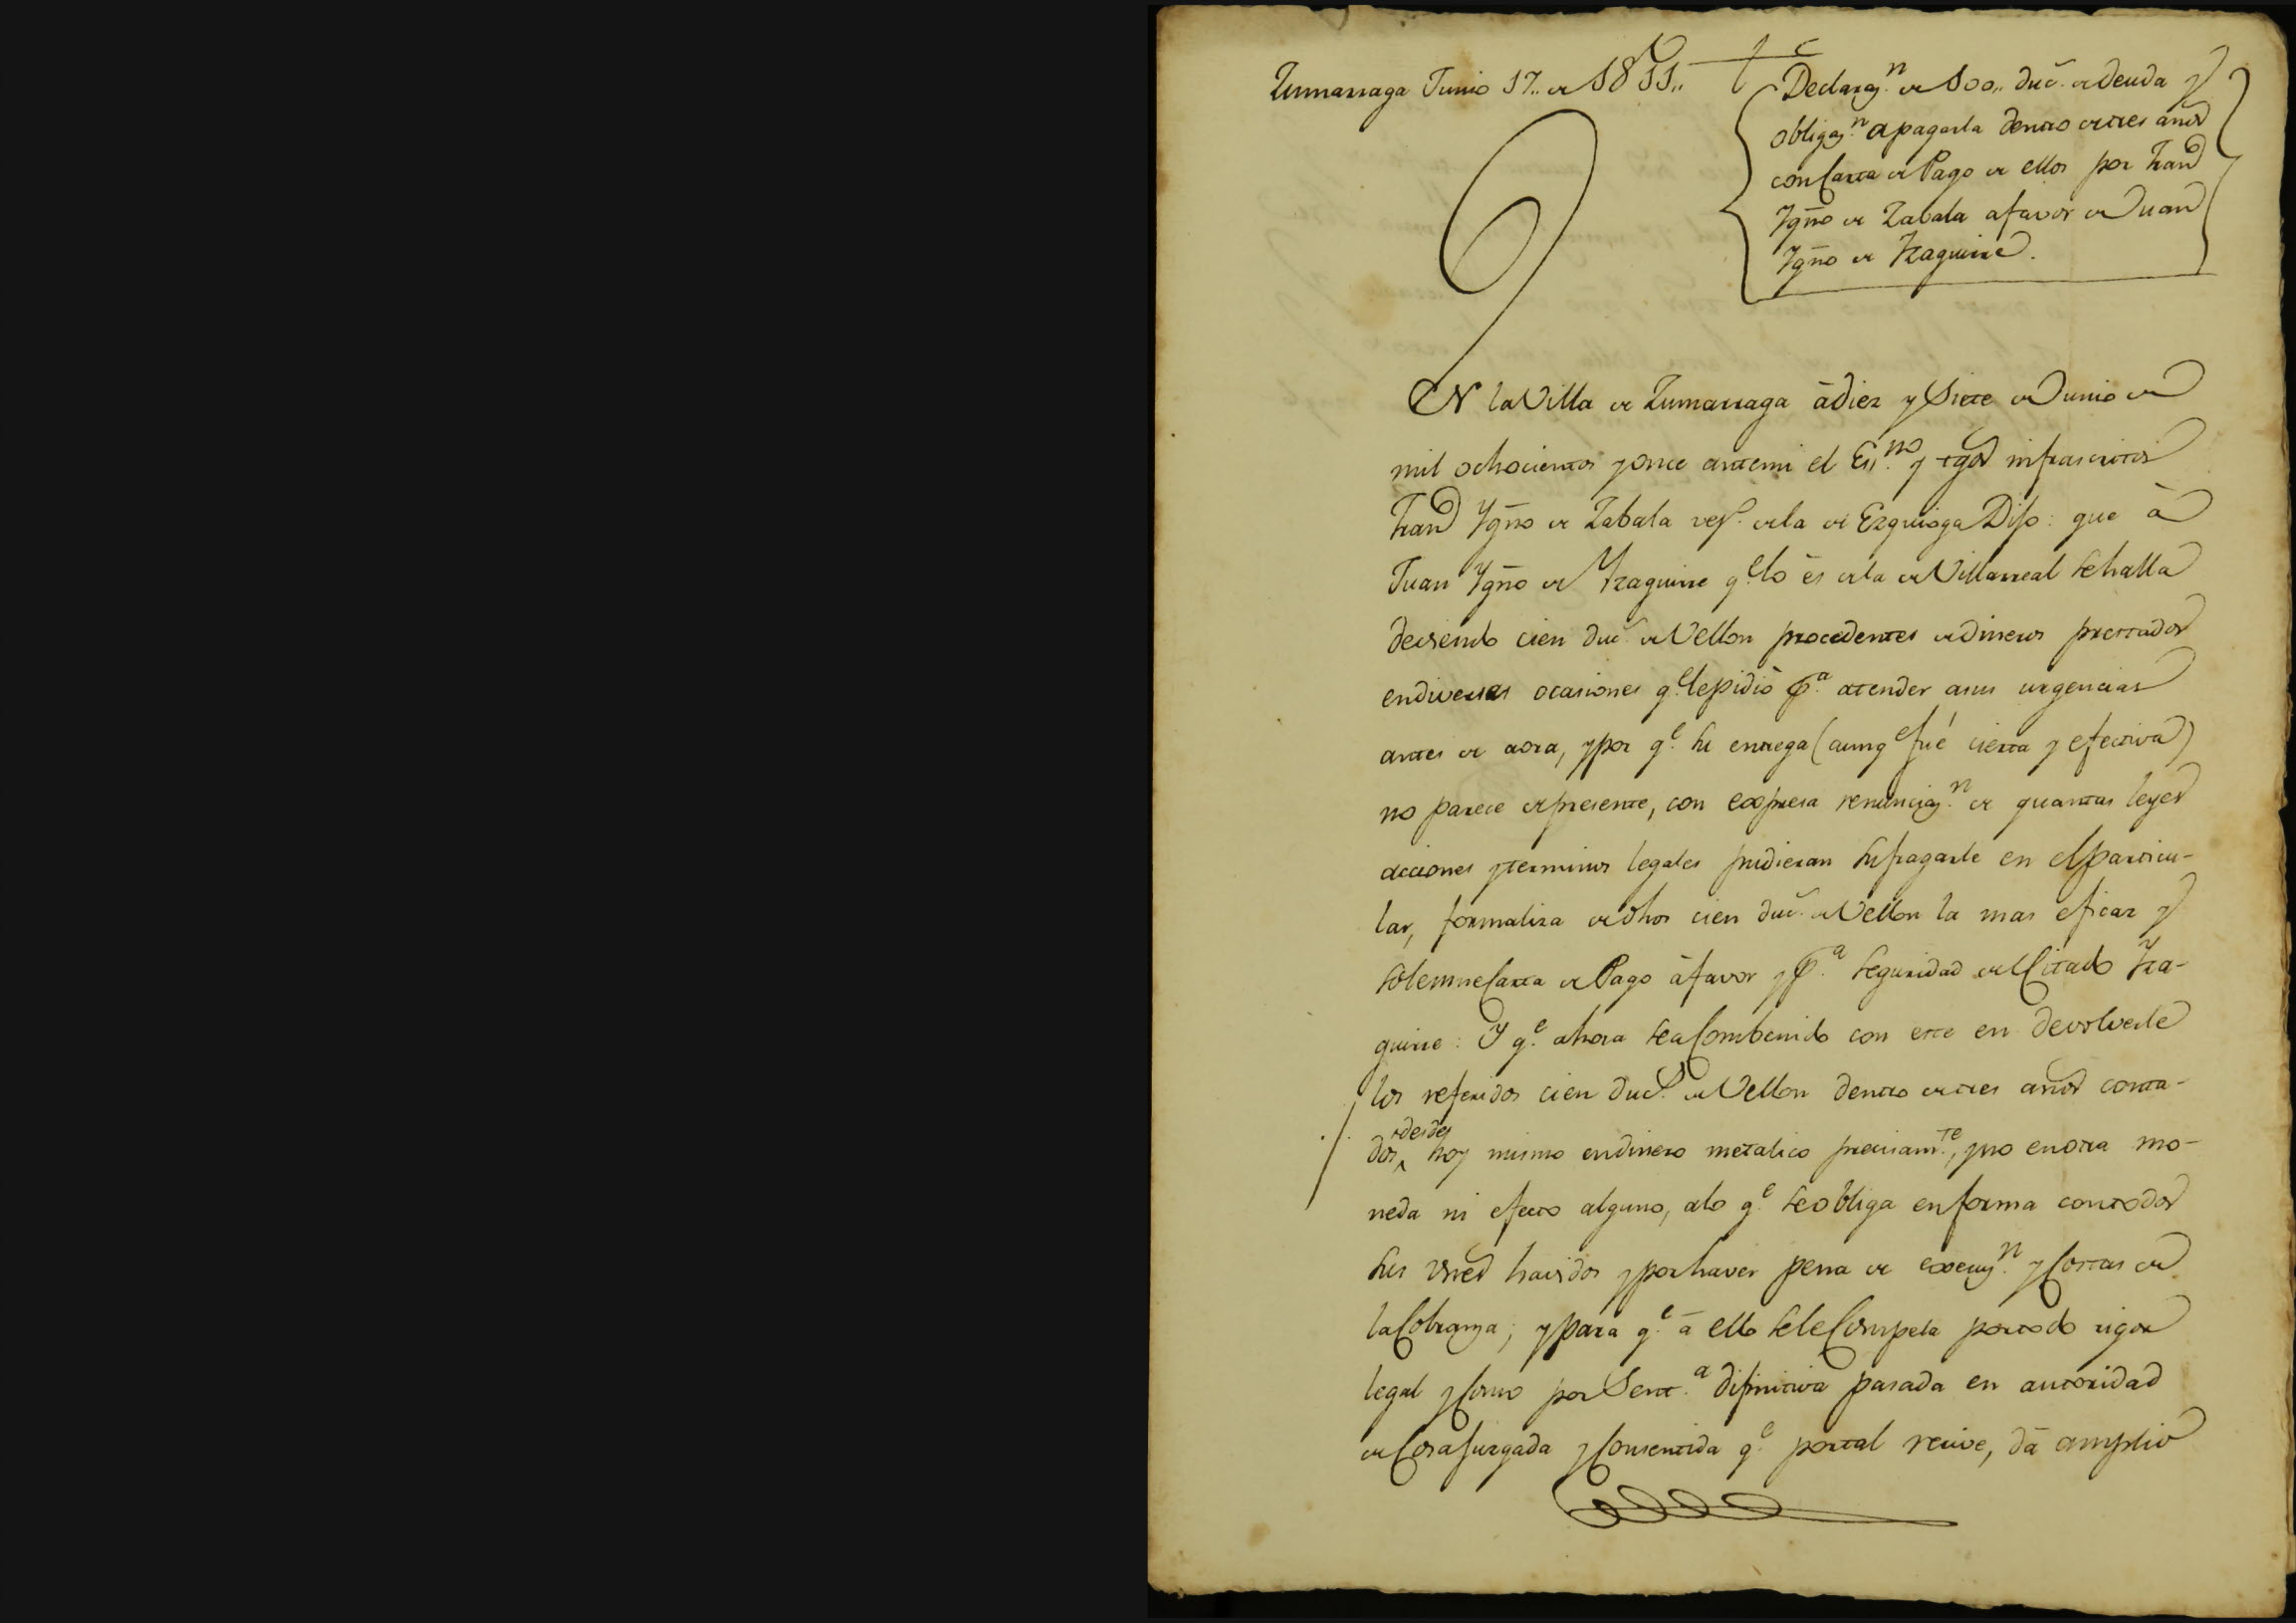 Zumarraga Junio 17,, de 1811,,
Declarazn. de 100,, duc. de deuda y
obligazn. a pagarla dentro de tres años
con Carta de Pago de ellos por Frano
Ygno de Zabala a favor de Juan
Ygno de Yzaguirre.
EN la Villa de Zumarraga à diez y Siete de Junio de
mil ochocientos y once ante mi el Essno. y tgos infrascritos
Frano Ygno de Zabala de la de Ezquioga Dijo: que à
Juan Ygno de Yzaguirre qe. lo ès de la de Villarreal se halla
deviendo cien duc. de Vellon procedentes de dineros prestados
en diversas ocasiones qe. le pidiò pa. atender a sus urgencias
antes de aora, y por qe. su entrega (aunqe fué cierta y efectiva)
no parece de presente, con expresa renunciazn. de quantas leyes
acciones y terminos legales pudieran sufragarle en el particu-
lar, formaliza de dhos cien duc. de Vellon la mas eficaz y
solemne Carta de Pago à favor y pa. seguridad del Citado Yza-
guirre: Y qe. ahora se a Combenido con este en devolverle
los referidos cien ducs. de Vellon dentro de tres años conta-
dos desde hoy mismo en dinero metalico precisamte., y no en otra mo-
neda ni efecto alguno, a lo qe. se obliga en forma con todos
sus vnes havidos y por haver pena de execuzn. y Costas de
la Cobranza; y para qe. à ello se le Compela por todo rigor
legal y Como por Senta. difinitiva pasada en autoridad
de Cosa Juzgada y Consentida qe. por tal recive, dà amplio